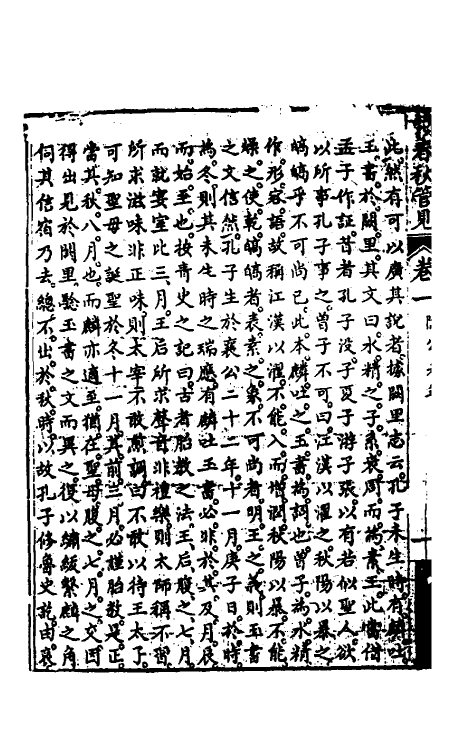 春秋管見 卷一 隱公元年
此然存可以廣其說者據闕里志云孔子未生時有麟吐
玉書於闕里其文曰水精之子系衰周而為素王此當借
孟子作証昔者孔子沒子夏子游子張以有若似聖人欲
以所事孔子事之曾子不可曰江漢以濯之秋陽以暴之
皜皜乎不可尚已此本麟吐之玉書為詞也曾子為水精
作形容語故稱江漢以濯不能入而增潤秋陽以暴不能
燥之使乾皜皜者表素之象不可尚者明王之義則玉書
之文信然孔子生於襄公二十二年十一月庚子日於時
為冬則其未生時之瑞應有麟吐玉書必非於其及月辰
而始至也按青史之記曰古者胎教之法王后腹之七月
而就宴室比三月王后所求聲音非禮樂則太師稱不習
所求滋味非正味則太宰不敢煎調曰不敢以待王太子
可知聖母之誕聖於冬十一月其前三月必謹胎教是正
當其秋八月也而麟亦適至猶在聖母腹之七月之交因
得出見於闕里驗玉書之文而異之復以繡紱繫麟之角
伺其信宿乃去總不出於秋時以故孔子修魯史託由哀